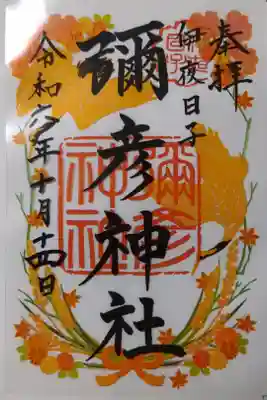 奉拝
伊夜日子
彌彦神社
令和六年十月十四日
彌彦
神社